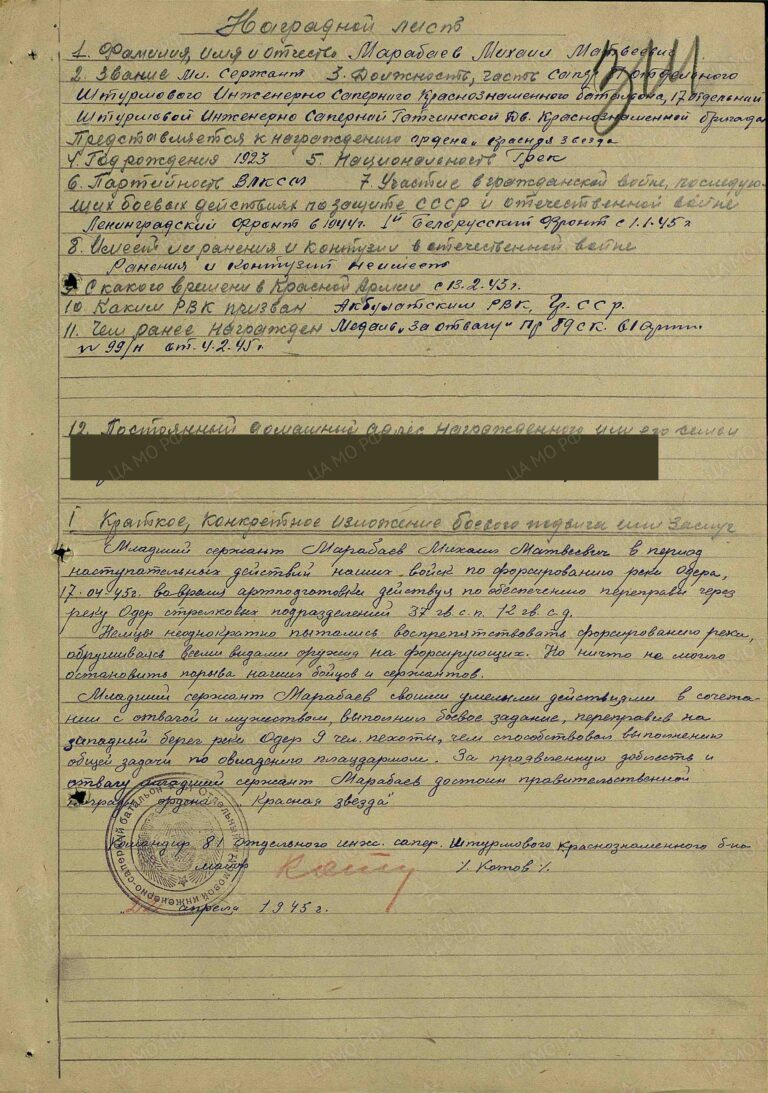 Наградной лист
1. Фамилия, имя и отчество Марабаев Михаил Матвеевич
2. Звание мл. сержант 3. Должность, часть сапер отдельного
Штурмового Инженерно Саперного Краснознаменного батальона, 17 отдельной
Штурмовой Инженерно Саперной Гатчинской Дв. Краснознаменной бригады
Представляется к награждению ордена „Красная звезда"
4. Год рождения 1923 5. Национальность Грек
6. Партийность ВЛКСМ 7. Участие в гражданской войне, последую-
щих боевых действиях по защите СССР и отечественной войне
Ленинградский Фронт в 1944г. 1й Белорусский Фронт с 1.1.45г
8. Имеет ли ранения и контузии в отечественной войне
Ранения и контузий не имеет
9. С какого времени в Красной Армии с 13.2.43г.
10 Каким РВК призван РВК, Гр. ССР.
11. Чем ранее награжден Медаль „За отвагу" Пр 89 СК.
№ 99/н от. 4.2.45г
12. Постоянный домашный адрес награжденного или его семьи
I Краткое, конкретное изложение боевого подвига или заслуг
Младший сержант Марабаев Михаил Матвеевич в период
наступательных действий наших войск по форсированию реки Одера,
17.04.45г. вовремя артподготовки действуя по обеспечению переправы через
реку Одер стрелковых подразделений 37 гв. с.п. 12 гв. с.д.
Немцы неоднократно пытались воспрепятствовать форсированию реки,
обрушиваясь всеми видами оружия на форсирующих. Но ничто не могло
остановить порыва наших бойцов и сержантов.
Младший сержант Марабаев своими умелыми действиями в сочета-
нии с отвагой и мужеством, выполнил боевое задание, переправив на
западный берег реки Одер 9 чел. пехоты, чем способствовал выполнению
общей задачи по овладению плацдармом. За проявленную доблесть и
отвагу младший сержант Марабаев достоин правительственной
награды ордена „Красная звезда"
Командир 81 отдельного инж. сапер. Штурмового Краснознаменного б-на
майор /. Котов /.
апреля 1945г.